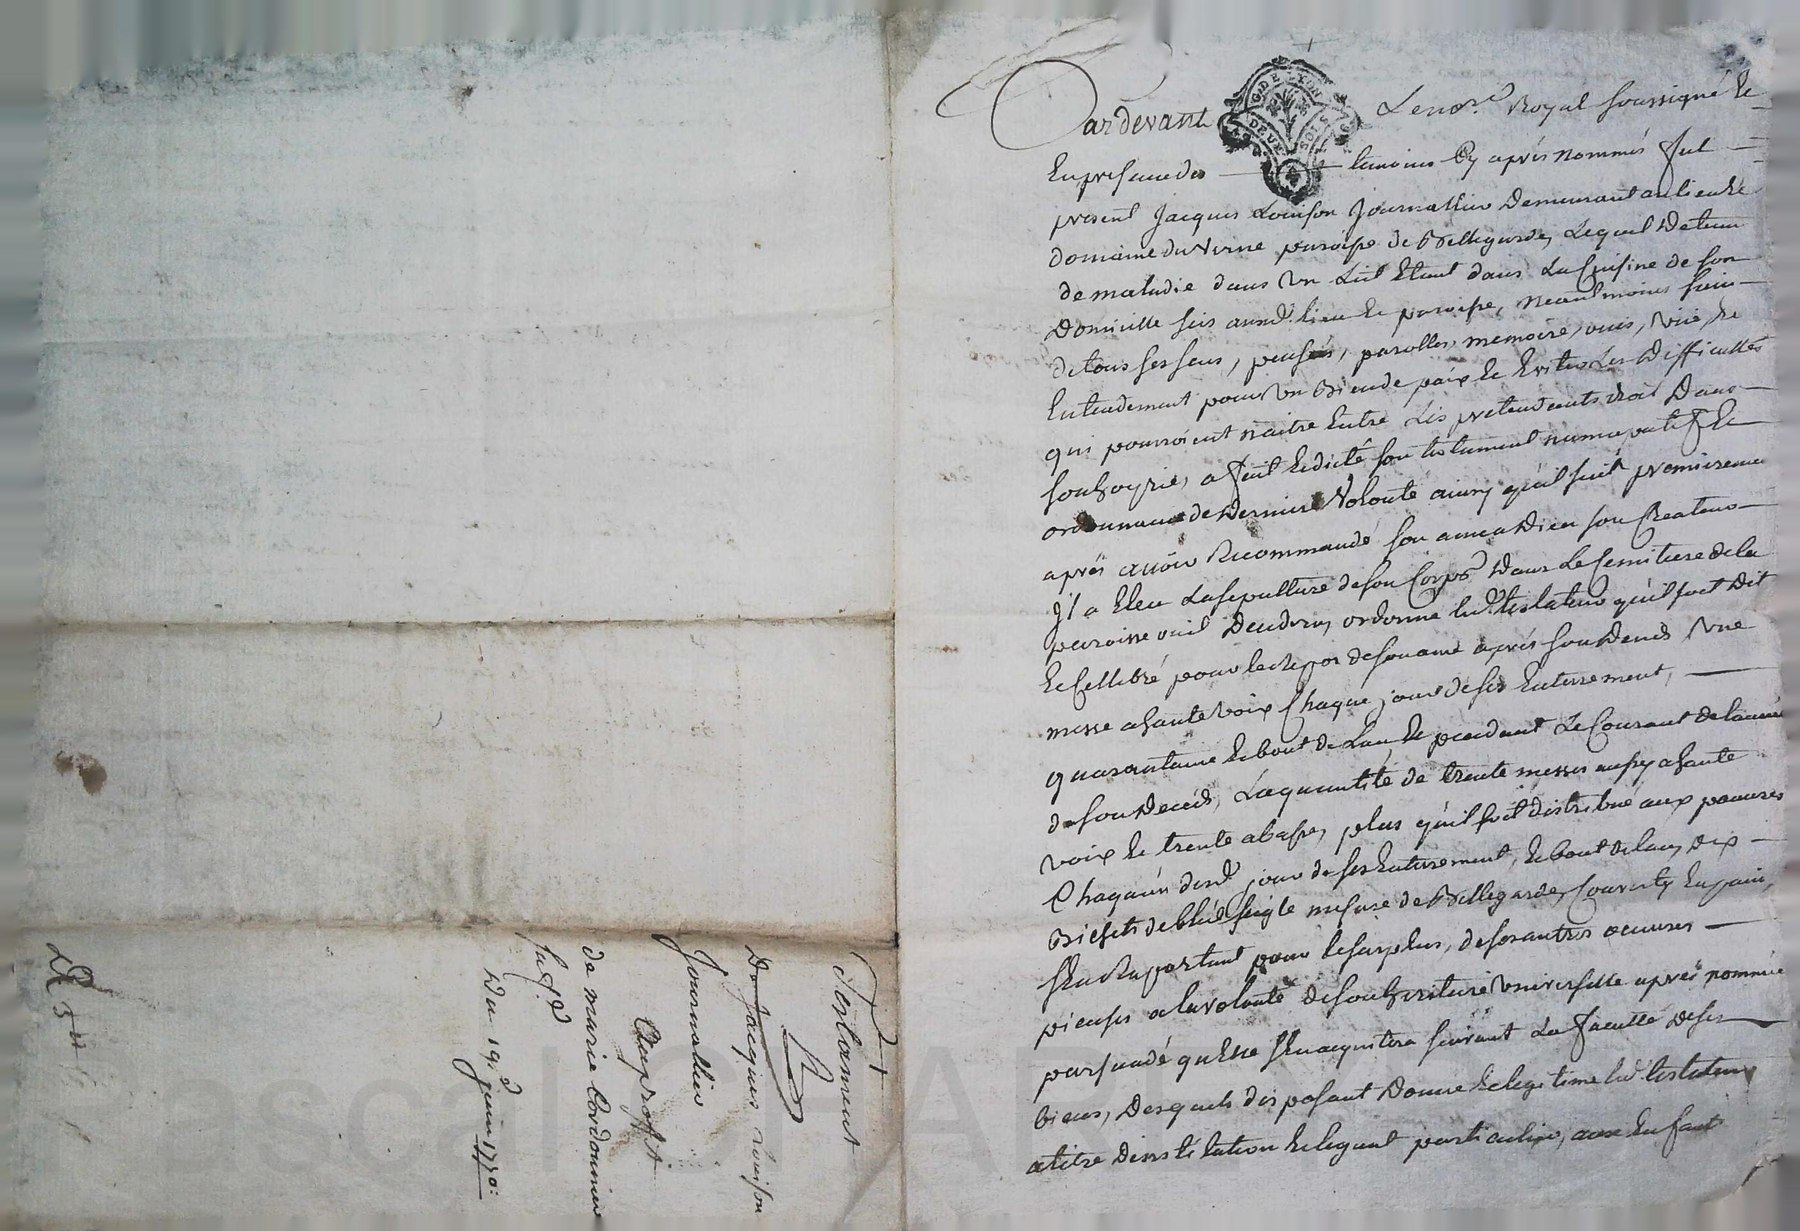 Pardevant Le nore Royal soussigné Et
G. DE LYON
DEUX SOLS
En presence des temoins Cy après nommés fut
present Jacques Louison Journallier Demeurant au lieu &
domaine du Verne paroisse de Bellegarde, Lequel Detenu
de maladie dans un Lict Etant dans La Cuisine de son
Domicille sis aud lieu Et paroisse, neantmoins sain
de tous ses sens, pensées, parolles, memoire, ouis, Vüe, Et
Entendement pour un Bien de paix Et Eviter Les Difficultés
qui pourroient naitre Entre Les pretendants droit Dans
son hoyrie, a fait Et dicté son testament nuncupatif Et
ordonnance de Derniere Volonté ainsy qu'il suit premierement
après avoir Recommandé son ame a Dieu son Createur
Il a Eleu La sepulture de son Corps Dans Le Cemitiere de la
paroisse ou il Decedera, ordonne led testateur qu'il soit Dit
Et Cellebré pour le repos de son ame après son Deceds Une
messe a haute voix Chaque jour de ses Enterrement,
quarantaine Et bout de Lan, Et pendant Le Courant de lannée
de son Deceds, La quantité de trente messes aussy a haute
voix Et trente a basse, plus qu'il soit distribué aux pauvres
Chaqu'un desd jour de ses Enterrement, Et bout de lan, dix
Bichets de bled seigle mesure de Bellegarde, Convertis En pain,
s'En Raportant pour le surplus, de ses autres œuvres
pieuses a la volonté de son heritiere Universelle après nommée
persuadé qu'Elle s'En acquitera suivant La faculté de ses
biens, Desquels disposant Donne Et legitime led testateur
a titre D'institution Et legat particulier, aux Enfant
Testament
De Jacques Louison
Journallier
Au proffit
de marie Cordonnier
sa fe
Du 19e juin 1770: